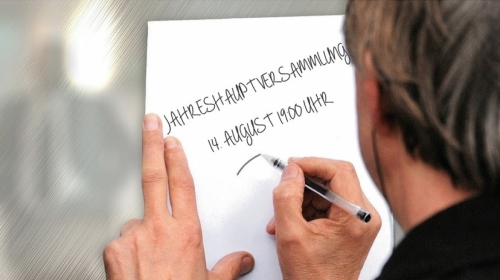 JAHRESHAUPTVERSAMMLUNG
14. AUGUST 19.00 UHR